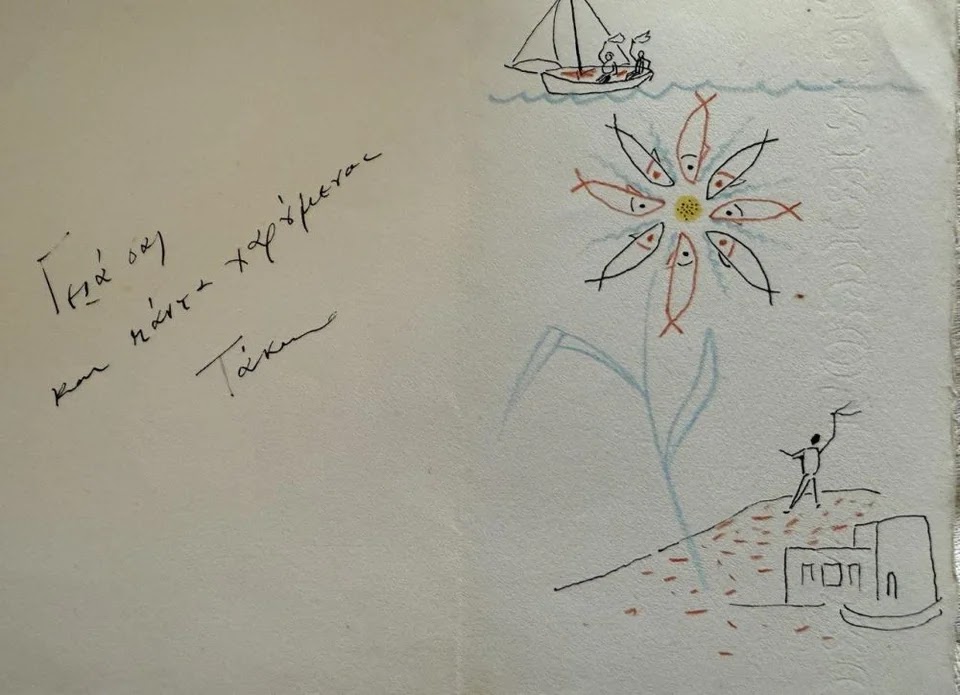 Γειά σας
και πάντα χαρούμενος
Τάκης